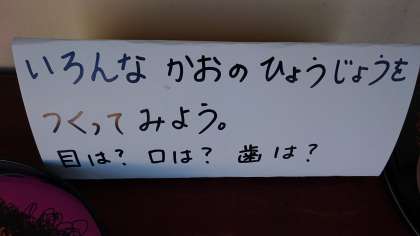 いろんな かおの ひょうじょうを
つくって みよう。
目は? 口は? 歯は?